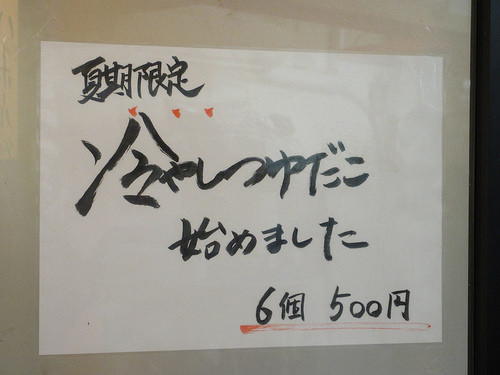 夏期限定
冷やしつゆだこ
始めました
6個 500円